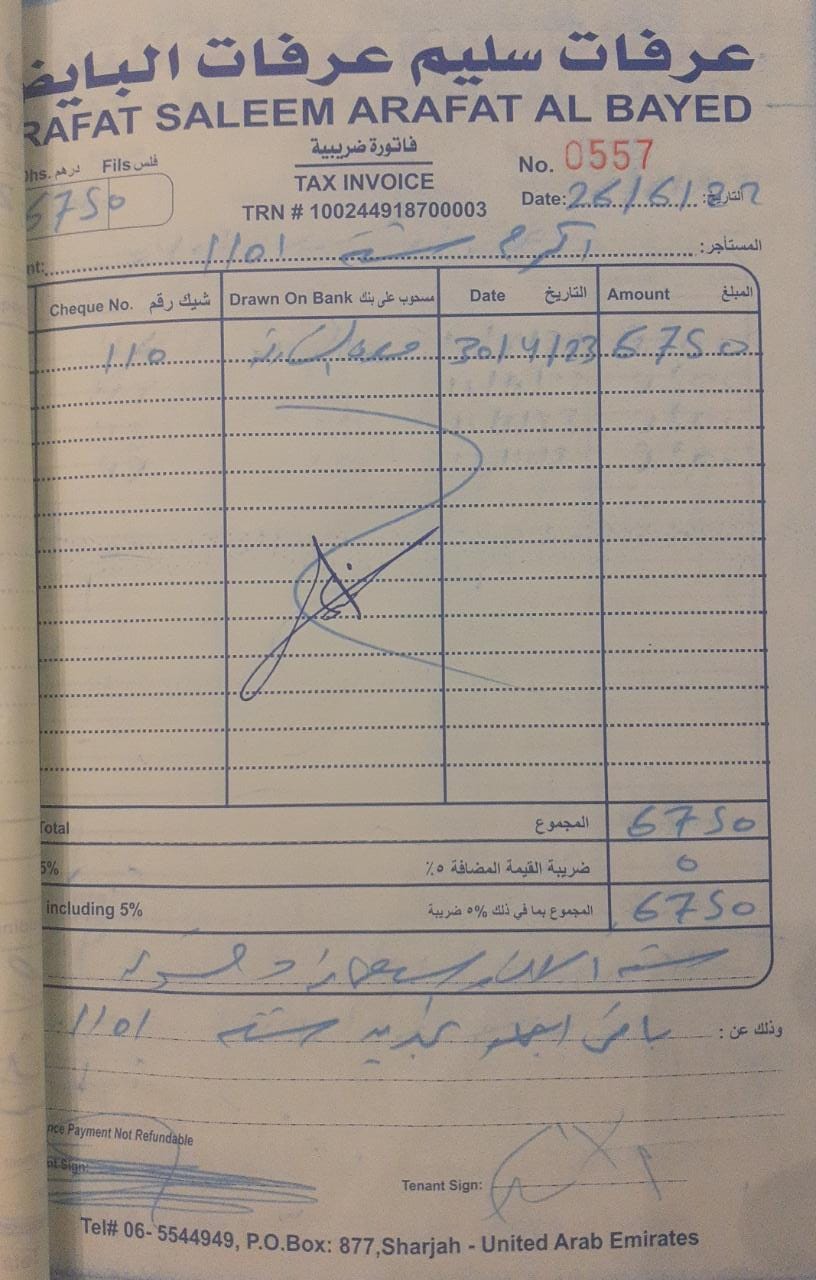 عرفات سليم عرفات البايض
RAFAT SALEEM ARAFAT AL BAYED
Dhs. درهم Fils فلس
6750
فاتورة ضريبية
TAX INVOICE
TRN # 100244918700003
No. 0557
Date: 26/6/22 التاريخ:
المستأجر: اكرم شقة 1101
Cheque No. شيك رقم Drawn On Bank مسحوب على بنك Date التاريخ Amount المبلغ
110 30/4/23 6750
Total المجموع 6750
5% ضريبة القيمة المضافة ٥٪ 0
including 5% المجموع بما في ذلك ٥% ضريبة 6750
ستة الاف سبعمائة و خمسون
وذلك عن: باقي ايجار تجديد شقة 1101
nce Payment Not Refundable
nt Sign:
Tenant Sign:
Tel# 06- 5544949, P.O.Box: 877,Sharjah - United Arab Emirates